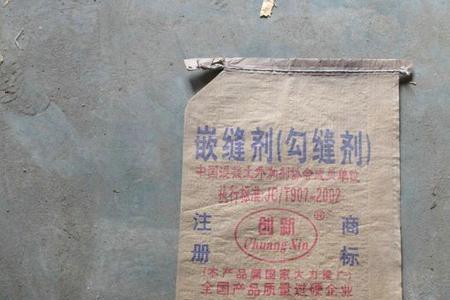 嵌缝剂(勾缝剂)
中国混凝土外加剂协会成员单位
执行标准:JC/T907-2002
注册 创新 ® 商标
Chuang Xin
(本产品属国家大力推广)
全国产品质量过硬企业